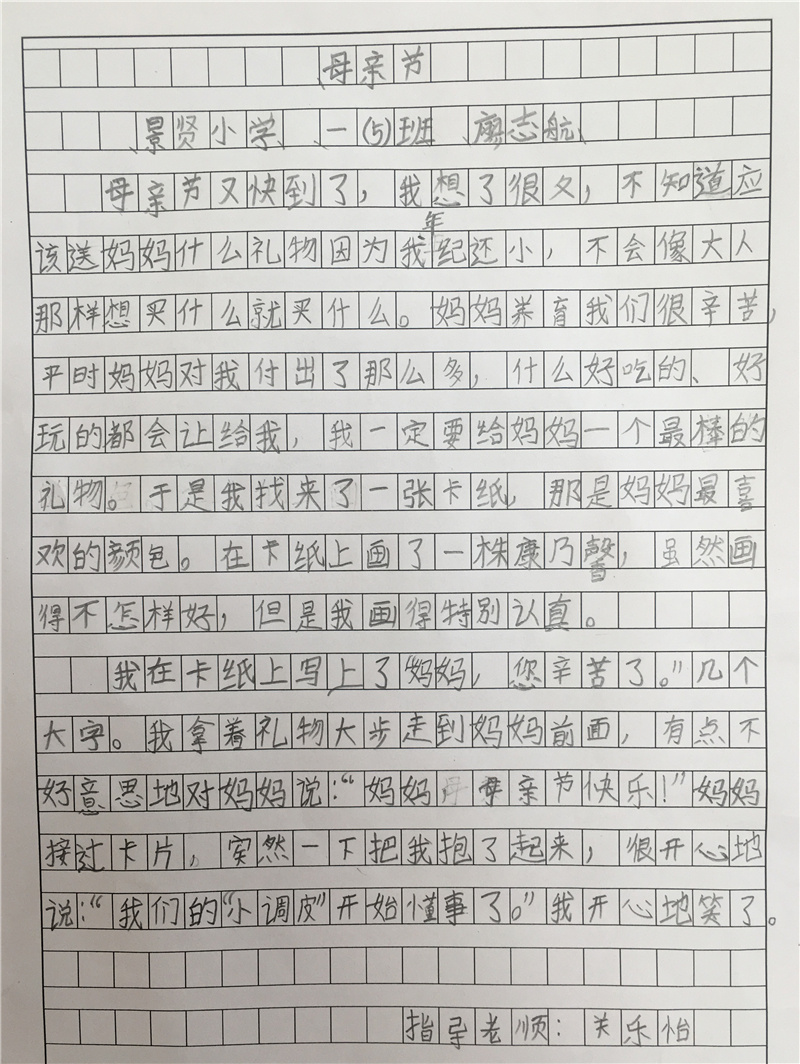 母亲节
景贤小学 一(5)班 廖志航
母亲节又快到了，我想了很久，不知道应
该送妈妈什么礼物因为我年纪还小，不会像大人
那样想买什么就买什么。妈妈养育我们很辛苦，
平时妈妈对我付出了那么多，什么好吃的、好
玩的都会让给我，我一定要给妈妈一个最棒的
礼物。于是我找来了一张卡纸，那是妈妈最喜
欢的颜色。在卡纸上画了一株康乃馨，虽然画
得不怎样好，但是我画得特别认真。
我在卡纸上写上了“妈妈，您辛苦了。”几个
大字。我拿着礼物大步走到妈妈前面，有点不
好意思地对妈妈说：“妈妈，母亲节快乐！”妈妈
接过卡片，突然一下把我抱了起来，很开心地
说：“我们的“小调皮”开始懂事了。”我开心地笑了。
指导老师：关乐怡